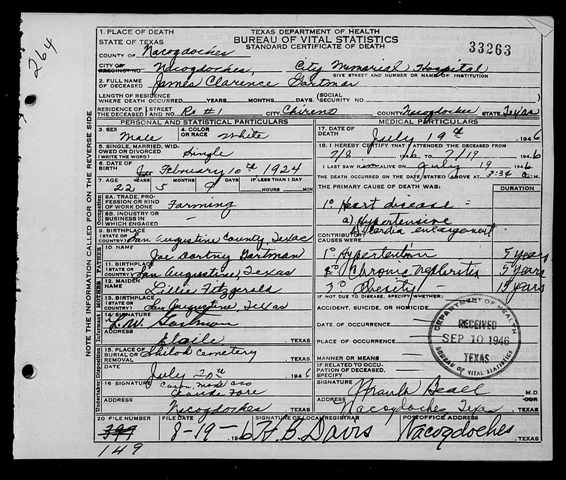 264
TEXAS DEPARTMENT OF HEALTH
BUREAU OF VITAL STATISTICS
STANDARD CERTIFICATE OF DEATH
33263
1. PLACE OF DEATH
STATE OF TEXAS
COUNTY OF Nacogdoches
CITY OR PRECINCT NO. Nacogdoches, City Memorial Hospital
GIVE STREET AND NUMBER OR NAME OF INSTITUTION
2. FULL NAME OF DECEASED James Clarence Gartman
LENGTH OF RESIDENCE WHERE DEATH OCCURRED YEARS MONTHS DAYS (SOCIAL SECURITY NO.
RESIDENCE OF THE DECEASED STREET AND NO. Rt #1 CITY Chireno COUNTY Nacogdoches STATE Texas
PERSONAL AND STATISTICAL PARTICULARS
3. SEX Male
4. COLOR OR RACE White
5. SINGLE, MARRIED, WIDOWED OR DIVORCED (WRITE THE WORD) Single
6. DATE OF BIRTH February 10th 1924
7. AGE YEARS MONTHS DAYS IF LESS THAN 1 DAY
22 5 9 HOURS MIN
8A. TRADE, PROFESSION OR KIND OF WORK DONE Farming
8B. INDUSTRY OR BUSINESS IN WHICH ENGAGED —
9. BIRTHPLACE (STATE OR COUNTRY) San Augustine County, Texas
10. NAME Gartman
11. BIRTHPLACE (STATE OR COUNTRY) San Augustine, Texas
12. MAIDEN NAME Lillie Fitzgerald
13. BIRTHPLACE (STATE OR COUNTRY) San Augustine, Texas
14. SIGNATURE Gartman
ADDRESS TEXAS
15. PLACE OF BURIAL OR REMOVAL Shiloh Cemetery TEXAS
DATE July 20th 1946
16. SIGNATURE
Claude Fore
ADDRESS Nacogdoches TEXAS
MEDICAL PARTICULARS
17. DATE OF DEATH July 19th 1946
18. I HEREBY CERTIFY THAT I ATTENDED THE DECEASED FROM
7/8 1946 TO 7/19 1946
I LAST SAW H ALIVE ON July 19 1946
THE DEATH OCCURRED ON THE DATE STATED ABOVE AT M.
THE PRIMARY CAUSE OF DEATH WAS: DURATION
1° Heart disease =
a) Hypertensive
b) Cardiac enlargement
CONTRIBUTORY CAUSES WERE:
1° Hypertention 5 years
2° Chronic nephritis 5 years
3° Obesity years
IF NOT DUE TO DISEASE, SPECIFY WHETHER:
ACCIDENT, SUICIDE, OR HOMICIDE
DATE OF OCCURRENCE
PLACE OF OCCURRENCE
MANNER OR MEANS
IF RELATED TO OCCUPATION OF DECEASED, SPECIFY
SIGNATURE Frank Beall M.D.
ADDRESS Nacogdoches Texas TEXAS
DEPARTMENT OF HEALTH
RECEIVED
SEP 10 1946
TEXAS
BUREAU OF VITAL STATISTICS
20 FILE NUMBER
FILE DATE
SIGNATURE OF LOCAL REGISTRAR
POSTOFFICE ADDRESS
8-19-1946 H. B. Davis Nacogdoches TEXAS
149
NOTE THE INFORMATION CALLED FOR ON THE REVERSE SIDE